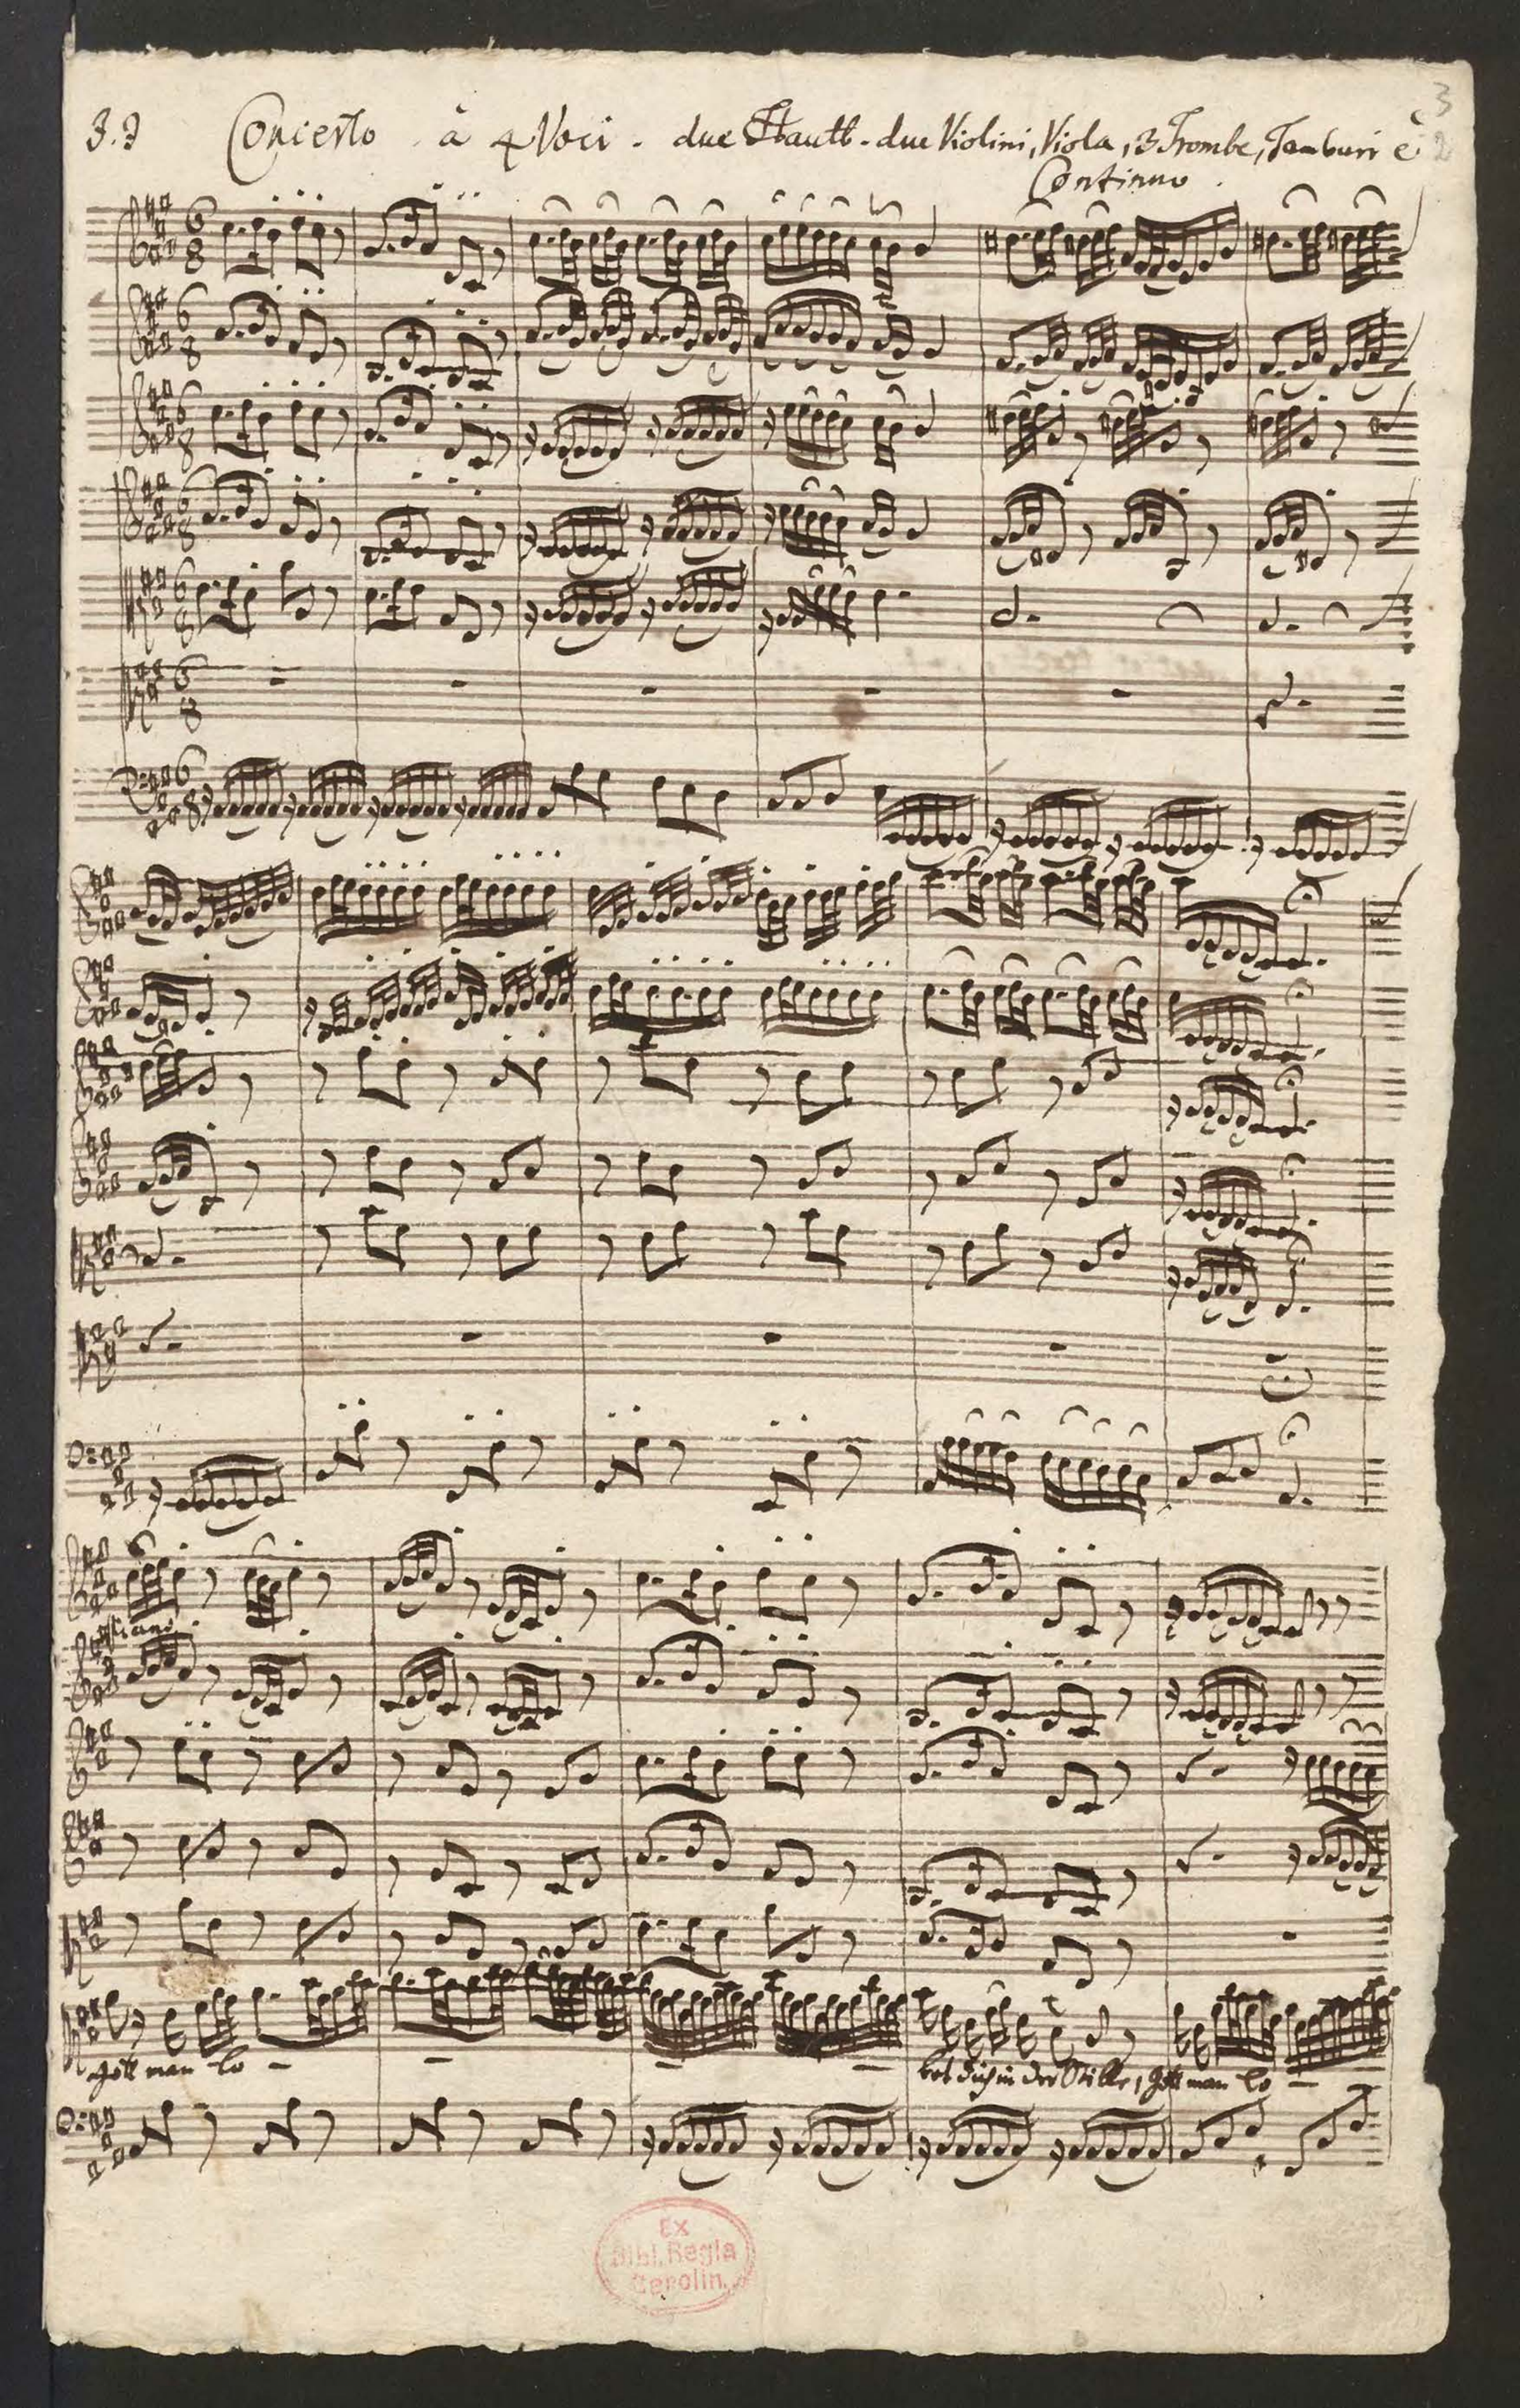 J.J Concerto à 4 Voci. due Hautb. due Violini, Viola, 3 Trombe, Tamburi è
Continuo.
3
2
6
8
6
8
6
8
6
8
6
8
6
8
6
8
piano
Gott man lo - - - - bet dich in der Stille, Gott man lo - -
Ex
Bibl. Regia
Berolin.